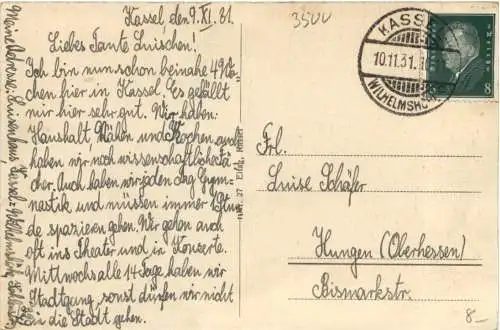 Kassel, den 9. XI. 31.
Liebes Tante Luischen!
Ich bin nun schon beinahe 4 Wo-
chen hier in Kassel. Es gefällt
mir hier sehr gut. Wir haben:
Haushalt, Nähen und Kochen, auch
haben wir noch wissenschaftliche Fä-
cher. Auch haben wir jeden Tag Gym-
nastik und müssen immer 1 Stun-
de spazieren gehen. Wir gehen auch
oft ins Theater und in Konzerte.
Mittwochs alle 14 Tage haben wir
Stadtgang, sonst dürfen wir nicht
in die Stadt gehen.
Meine Adresse: Luisenhaus, Kassel-Wilhelmshöhe
3500
KASSEL
10.11.31.
WILHELMSHÖHE
8
Frl.
Luise Schäfer
Hungen (Oberhessen)
Bismarkstr.
8-